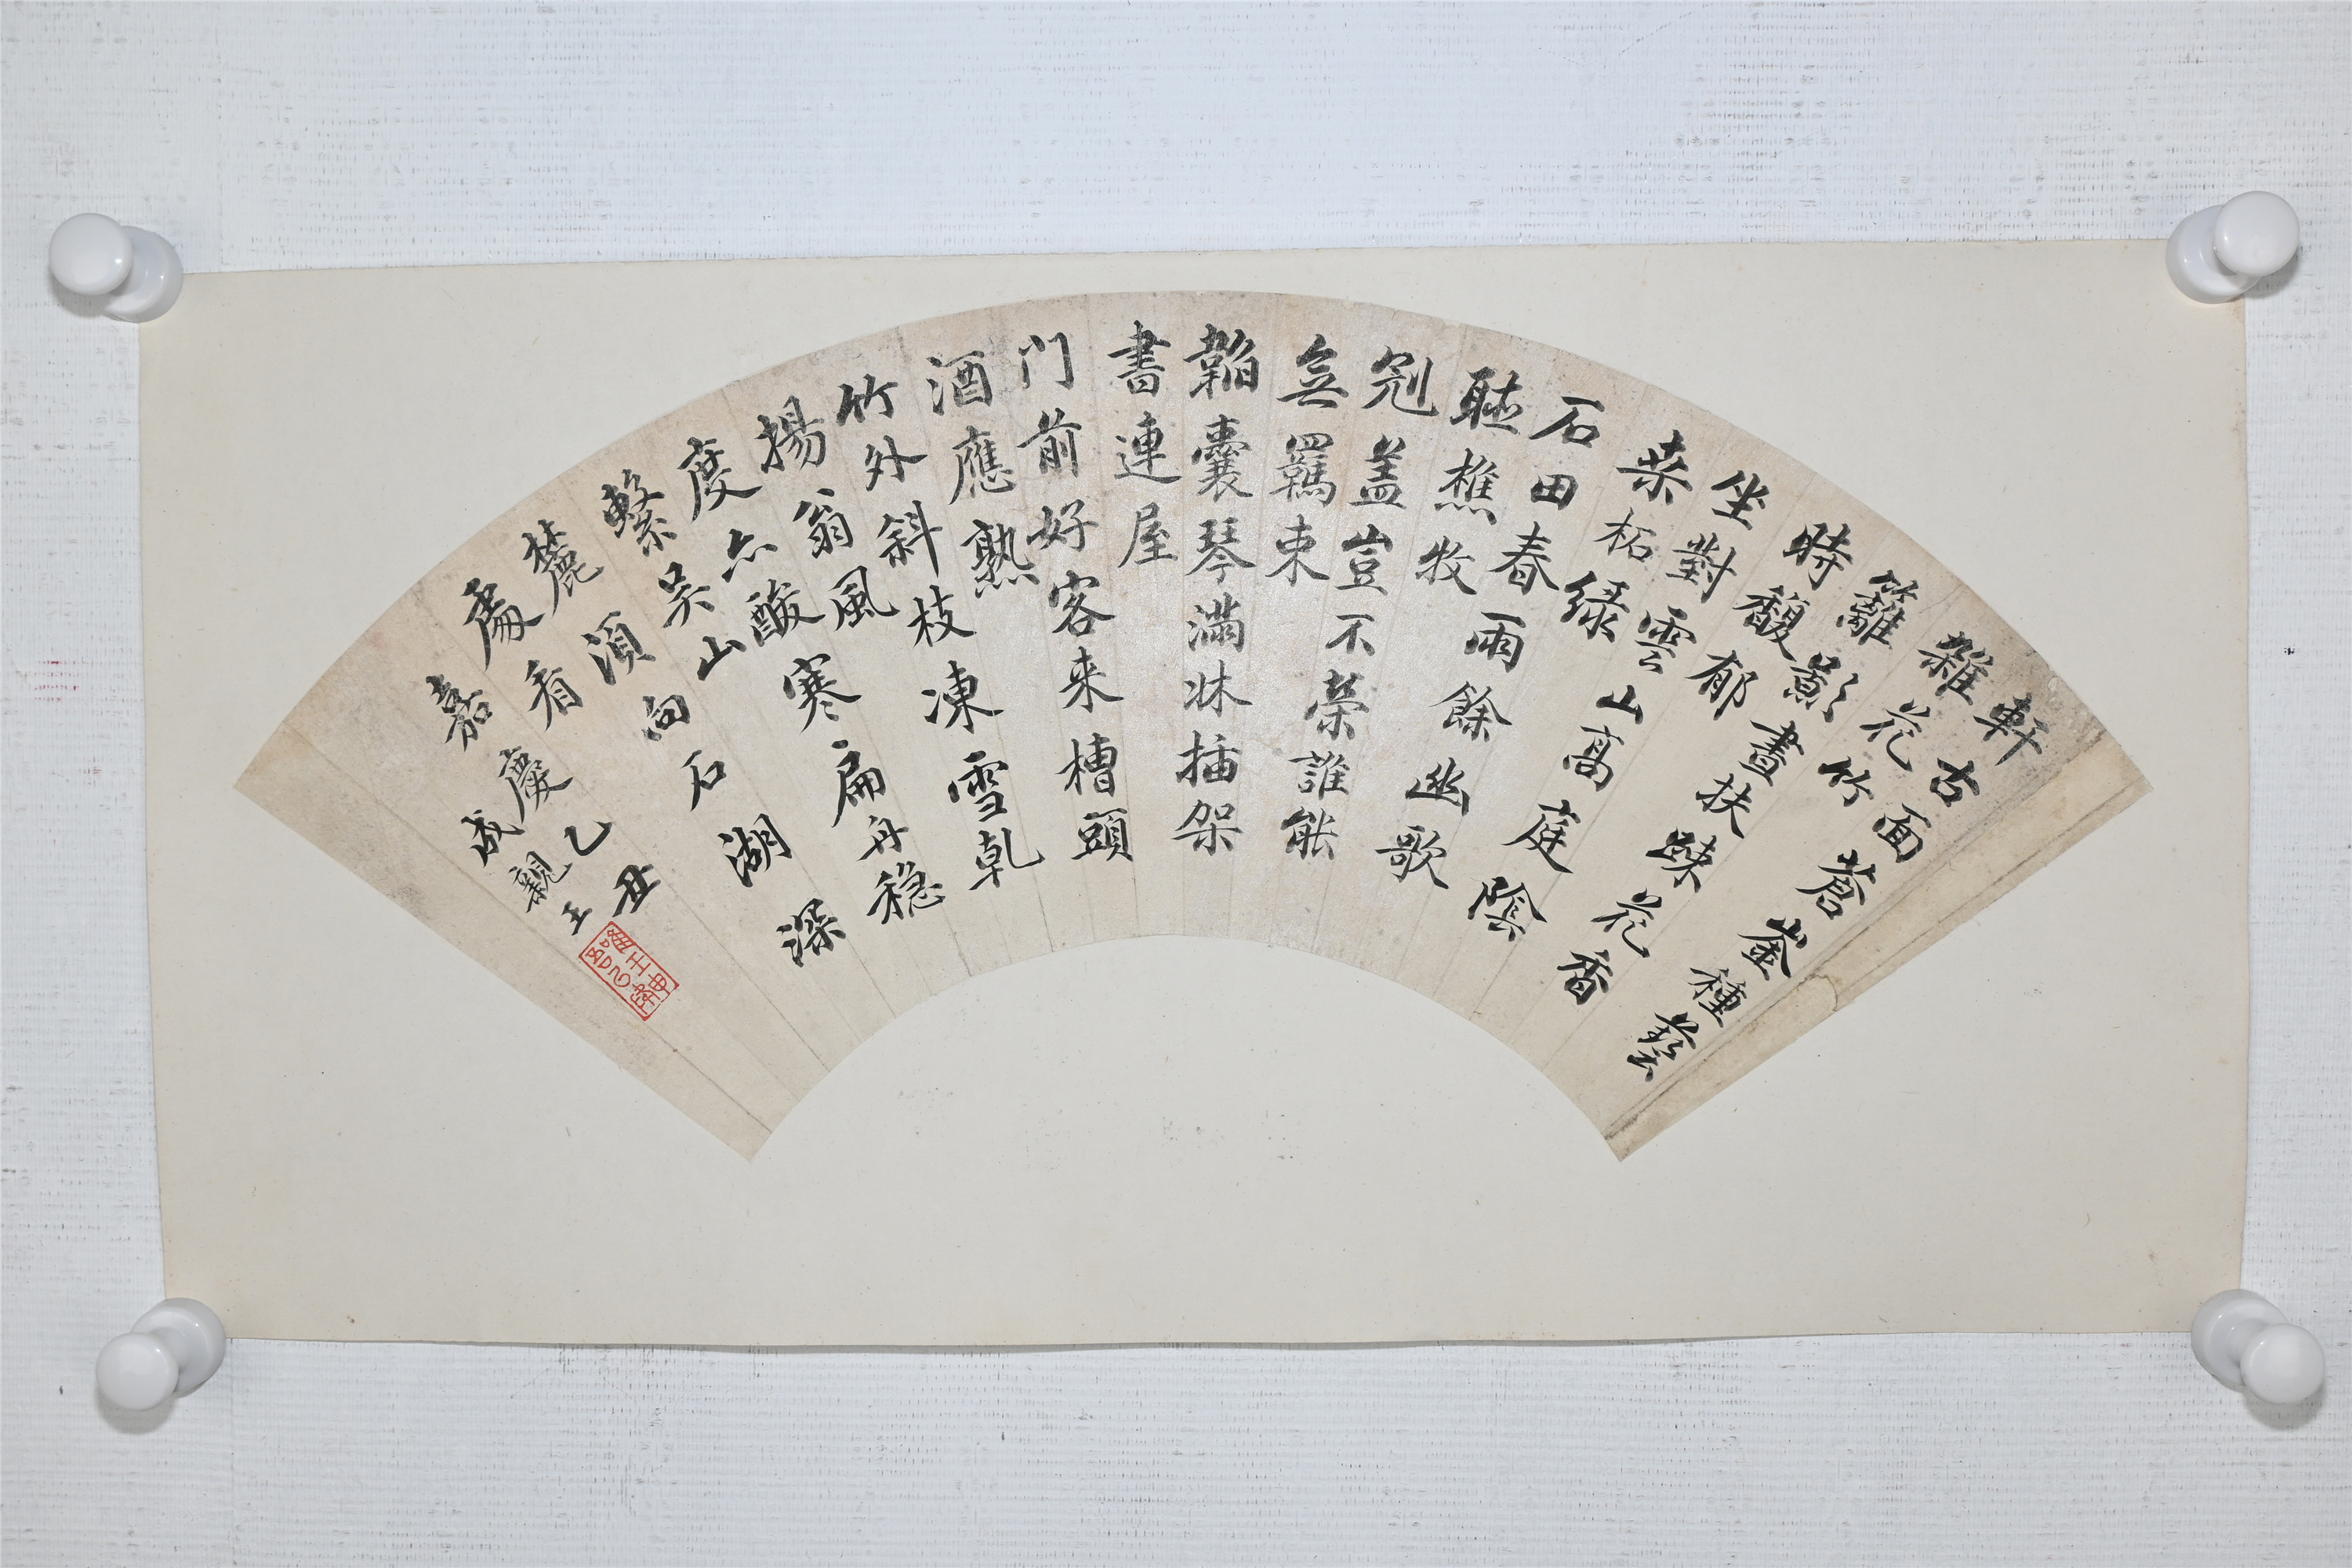 軒古面蒼崟種藝
雜花竹
籬影晝扶踈花香
時馥郁
坐對雲山高庭陰
桒柘綠
石田春雨餘幽歌
聴樵牧
冠盖豈不榮誰能
無羈束
韜囊琴滿牀插架
書連屋
门前好客来槽頭
酒應熟
竹外斜枝凍雪乹
揚翁風
度亦酸寒扁舟穩
繫吳山
麓湏向石湖深
處看
嘉慶乙丑
成親王